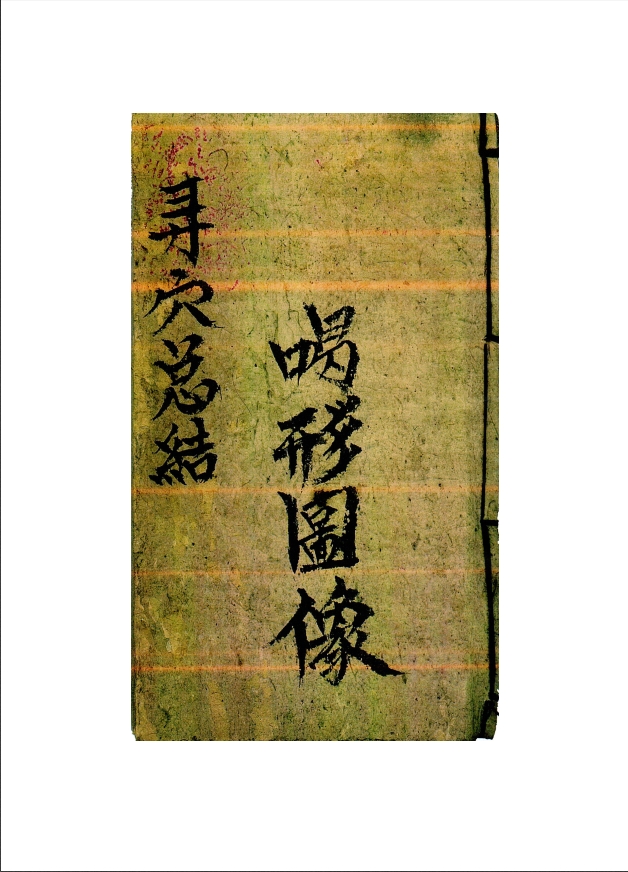 喝形圖像
尋穴总結